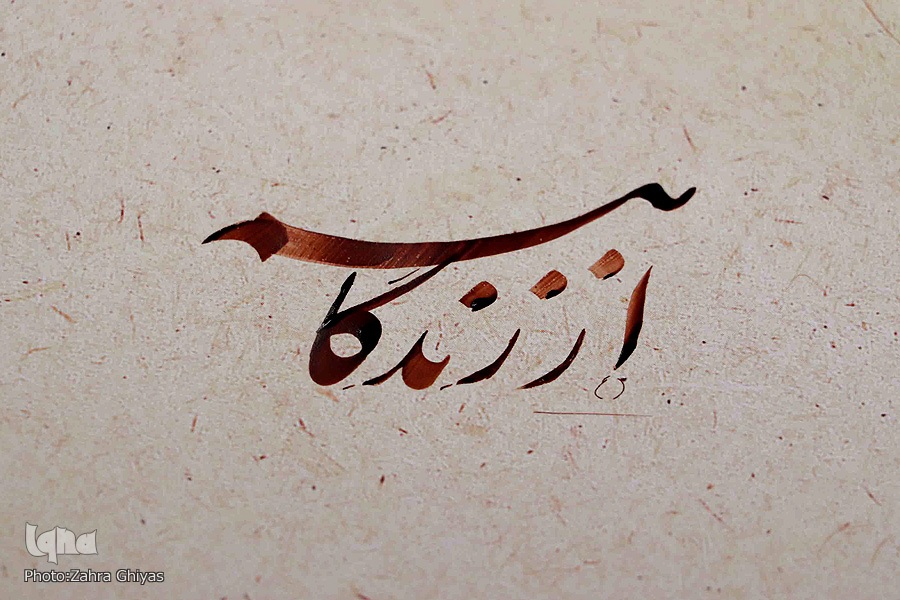 از زندگانی
Iqna
Photo:Zahra Ghiyas